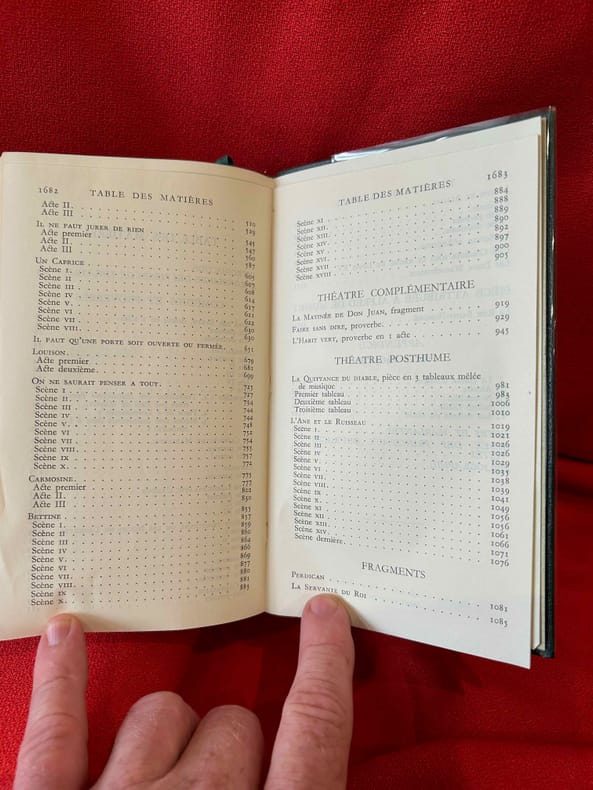 1682 TABLE DES MATIÈRES
Acte II. 510
Acte III 529
IL NE FAUT JURER DE RIEN 545
Acte premier 547
Acte II. 560
Acte III 587
UN CAPRICE 605
Scène I. 607
Scène II 608
Scène III 614
Scène IV 617
Scène V. 622
Scène VI 630
Scène VII 630
Scène VIII. 640
IL FAUT QU'UNE PORTE SOIT OUVERTE OU FERMÉE. 651
LOUISON. 679
Acte premier 681
Acte deuxième. 699
ON NE SAURAIT PENSER A TOUT. 723
Scène I 725
Scène II. 737
Scène III 744
Scène IV 744
Scène V. 748
Scène VI 752
Scène VII 754
Scène VIII. 755
Scène IX 757
Scène X. 772
CARMOSINE 775
Acte premier 777
Acte II. 802
Acte III 830
BETTINE 853
Scène I. 857
Scène II 859
Scène III 864
Scène IV 866
Scène V. 869
Scène VI 877
Scène VII. 880
Scène VIII. 881
Scène IX 883
Scène X.
TABLE DES MATIÈRES 1683
Scène XI 884
Scène XII. 888
Scène XIII. 889
Scène XIV 890
Scène XV. 892
Scène XVI. 897
Scène XVII 900
Scène XVIII 905
THÉATRE COMPLÉMENTAIRE
LA MATINÉE DE DON JUAN, fragment 919
FAIRE SANS DIRE, proverbe. 929
L'HABIT VERT, proverbe en 1 acte 945
THÉATRE POSTHUME
LA QUITTANCE DU DIABLE, pièce en 3 tableaux mêlée
de musique 981
Premier tableau 983
Deuxième tableau 1006
Troisième tableau 1010
L'ANE ET LE RUISSEAU 1019
Scène I. 1021
Scène II 1026
Scène III 1026
Scène IV 1029
Scène V 1035
Scène VI. 1038
Scène VII. 1039
Scène VIII. 1041
Scène IX 1049
Scène X. 1056
Scène XI 1056
Scène XII 1061
Scène XIII. 1066
Scène XIV. 1071
Scène dernière. 1076
FRAGMENTS
PERDICAN 1081
LA SERVANTE DU ROI 1085